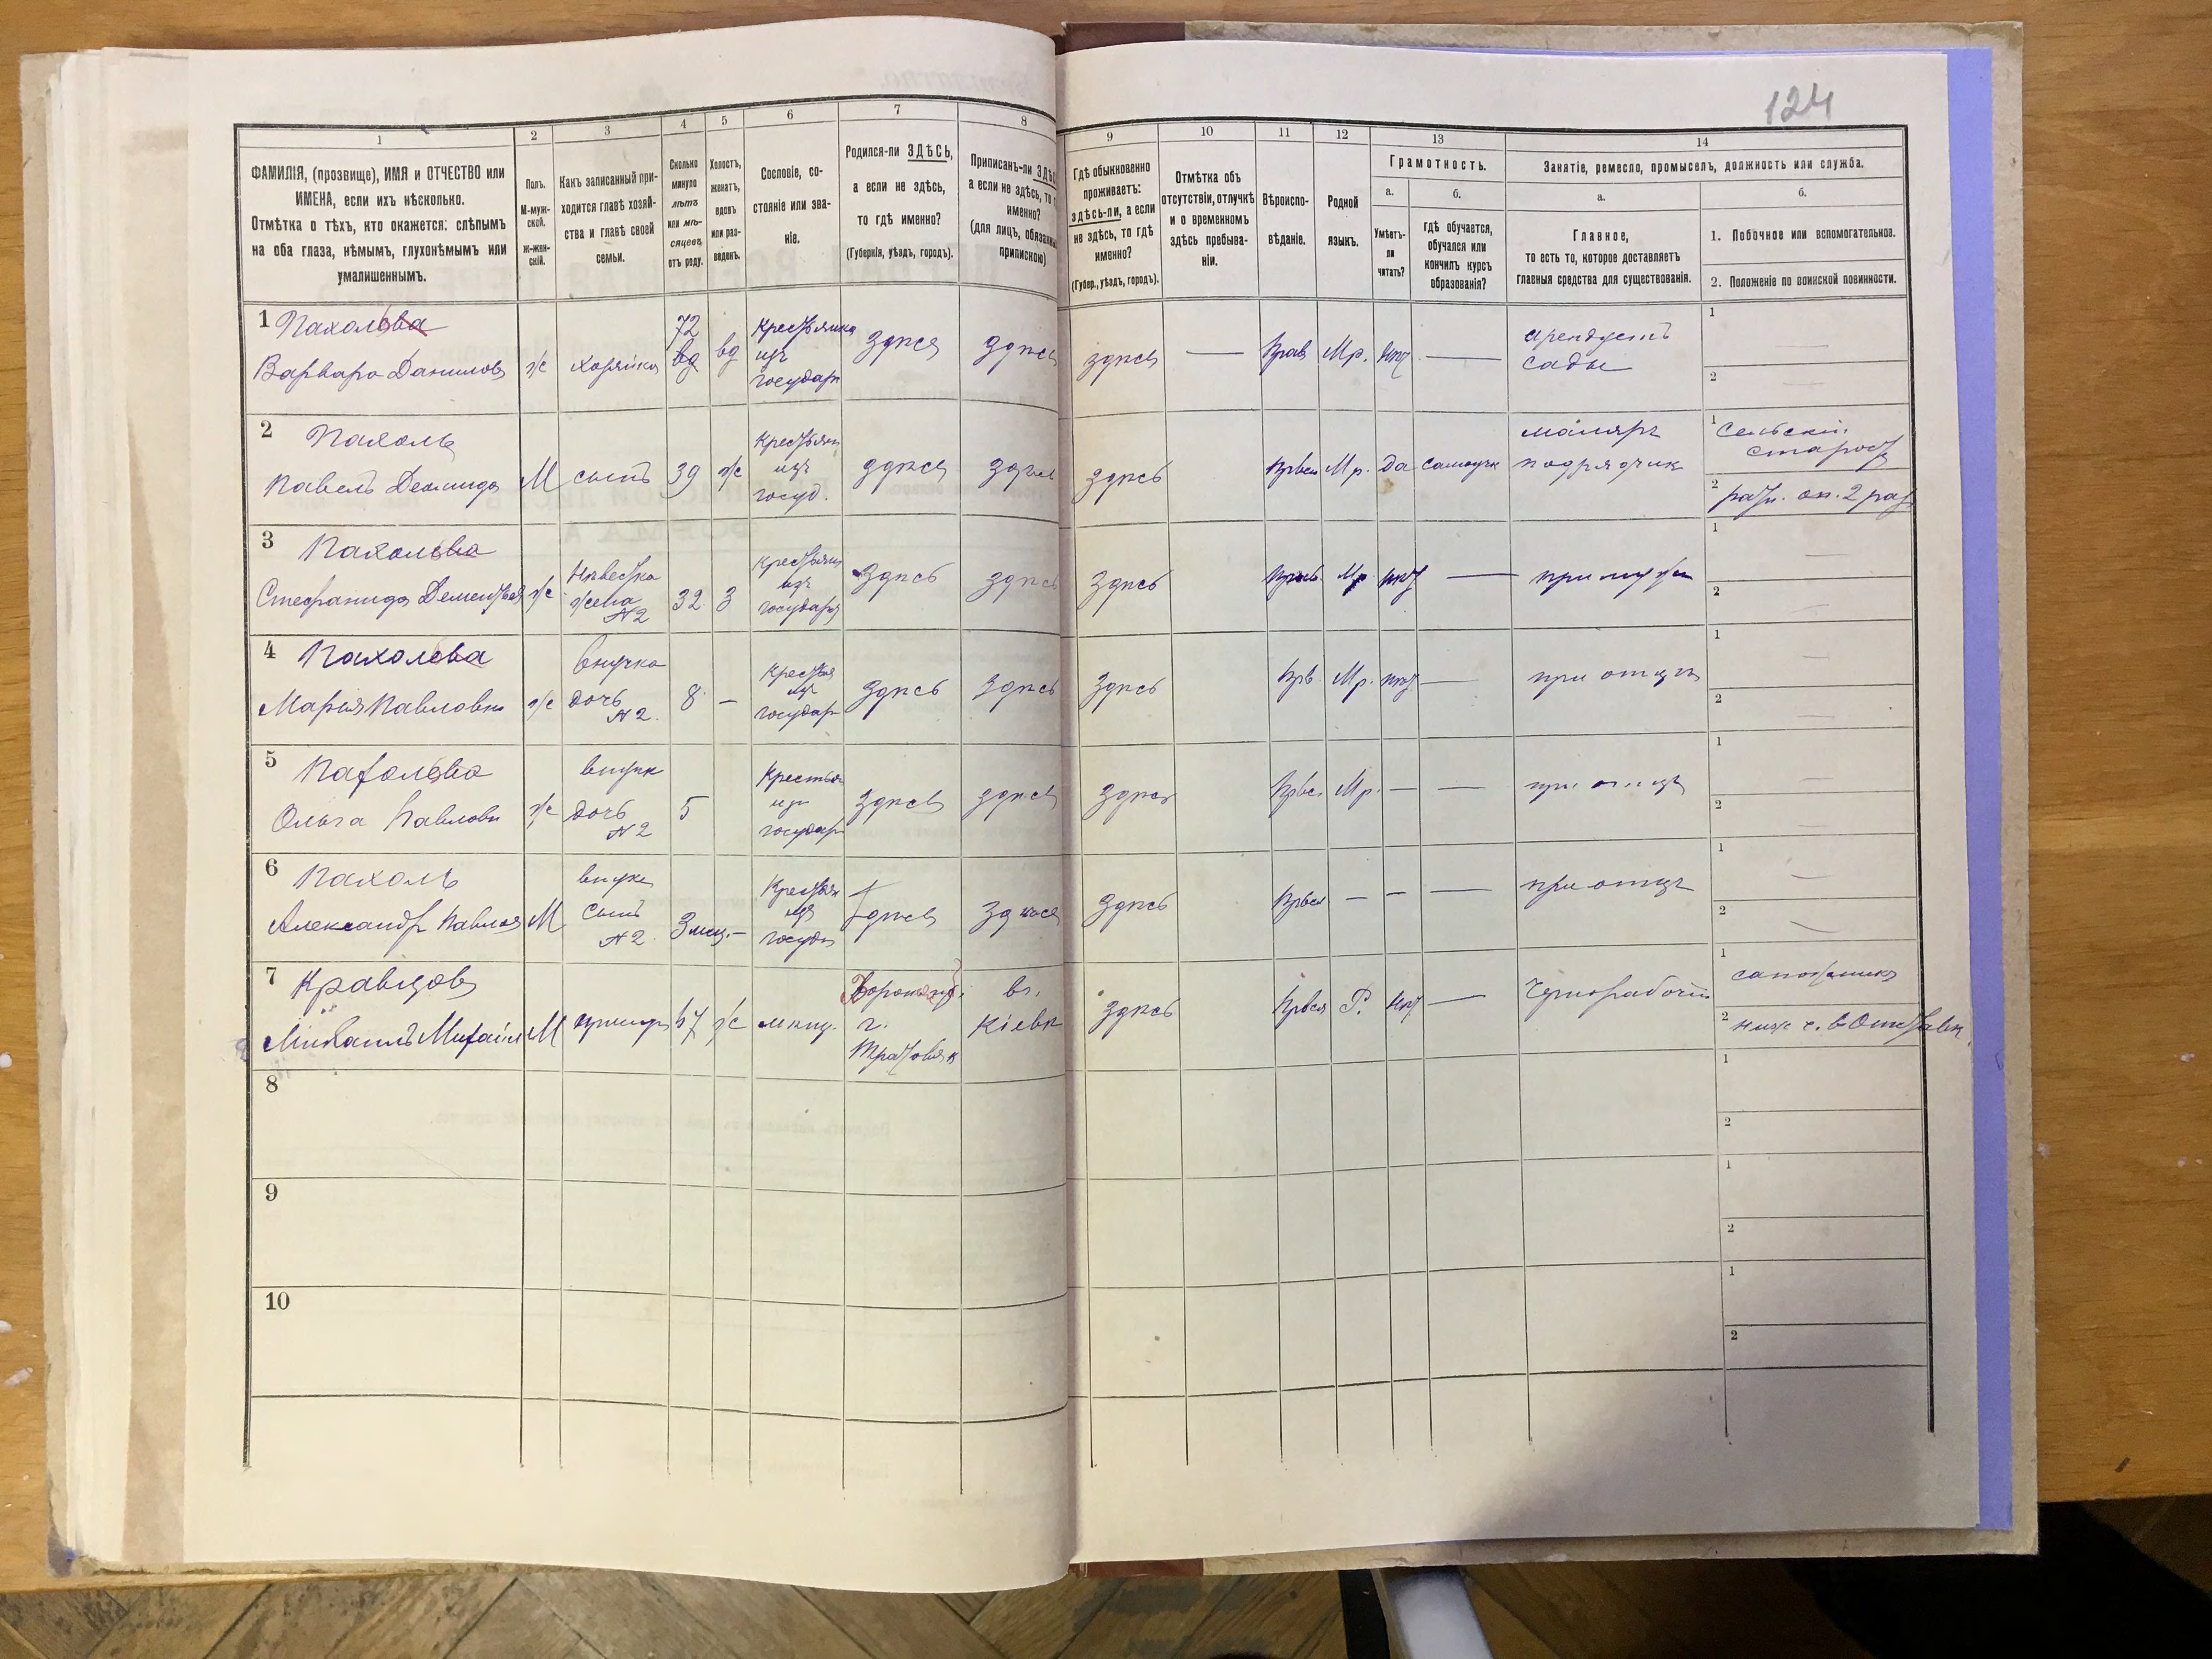 124
1
ФАМИЛІЯ, (прозвище), ИМЯ и ОТЧЕСТВО или
ИМЕНА, если ихъ нѣсколько.
Отмѣтка о тѣхъ, кто окажется: слѣпымъ
на оба глаза, нѣмымъ, глухонѣмымъ или
умалишеннымъ.
2
Полъ.
М-муж-
ской.
Ж-жен-
скій.
3
Какъ записанный при-
ходится главѣ хозяй-
ства и главѣ своей
семьи.
4
Сколько
минуло
лѣтъ
или мѣ-
сяцевъ
отъ роду.
5
Холостъ,
женатъ,
вдовъ
или раз-
веденъ.
6
Сословіе, со-
стояніе или зва-
ніе.
7
Родился-ли ЗДѢСЬ,
а если не здѣсь,
то гдѣ именно?
(Губернія, уѣздъ, городъ).
8
Приписанъ-ли
а если не здѣсь, то
именно?
(для лицъ,
припискою)
9
Гдѣ обыкновенно
проживаетъ:
здѣсь-ли, а если
не здѣсь, то гдѣ
именно?
(Губер., уѣздъ, городъ).
10
Отмѣтка объ
отсутствіи, отлучкѣ
и о временномъ
здѣсь пребыва-
ніи.
11
Вѣроиспо-
вѣданіе.
12
Родной
языкъ.
13
Грамотность.
а.
Умѣетъ-
ли
читать?
б.
гдѣ обучается,
обучался или
кончилъ курсъ
образованія?
14
Занятіе, ремесло, промыселъ, должность или служба.
а.
Главное,
то есть то, которое доставляетъ
главныя средства для существованія.
б.
1. Побочное или вспомогательное.
2. Положеніе по воинской повинности.
1 Пахольва
Варвара Данилов
ж
хозяйка
72
вд
вд
Крестьянка
изъ
государ
здѣсь
здѣсь
здѣсь
—
Прав
Мр.
нѣт
—
арендуетъ
сады
1
2
2 Пахоль
Павелъ Демида
М
сынъ
39
ж
Крестьян
изъ
госуд.
здѣсь
здѣсь
здѣсь
Мр.
да
самоучк
маляръ
подрядчик
1 Сельскій
староста
2 ратн. оп. 2 раз
3 Пахольва
Стефанида Дементьев
ж
Невестка
жена
№2
32
З
Крестьян
изъ
государ
здѣсь
здѣсь
здѣсь
Мр
нѣт
—
при мужѣ
1
2
4 Пахольва
Марья Павловн
ж
внучка
дочь
№2.
8
—
Крестья
изъ
государ
здѣсь
здѣсь
здѣсь
Прв.
Мр.
нѣт
—
при отцѣ
1
2
5 Пахольва
Ольга Павловн
ж
внучк
дочь
№2
5
Крестья
изъ
государ
здѣсь
здѣсь
здѣсь
Мр.
—
—
при отцѣ
1
2
6 Пахоль
Александр Павлов
М
внукъ
сынъ
№2
3 мѣс.
—
Крестьян
изъ
госуд
здѣсь
здѣсь
здѣсь
—
—
—
при отцѣ
1
2
7 Кравцовъ
Михаилъ Михайл
М
67
ж
мѣщ.
г.
вг.
Кіевѣ
здѣсь
Р.
нѣт
—
Чернорабочій
1 сапожникъ
2 ниж. ч. в Отставк.
8
1
2
9
1
2
10
1
2